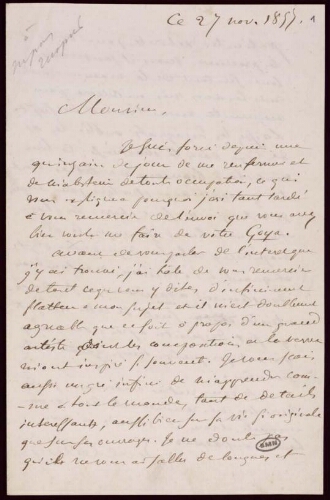 Ce 27 nov. 1857.
Monsieur,
Je suis forcé depuis une
quinzaine de jours de me renfermer et
de m'abstenir de toute occupation, ce qui
vous expliquera pourquoi j'ai tant tardé
à vous remercier de l'envoi que vous avez
bien voulu me faire de votre Goya.
avant de vous parler de l'intérêt que
j'y ai trouvé, j'ai hâte de vous remercier
de tout ce que vous y dites d'infiniment
flatteur à mon sujet et il m'est doublement
agréable que ce soit à propos d'un grand
artiste dont les compositions et la verve
m'ont inspiré si souvent. Je vous sais
aussi un gré infini de m'apprendre com-
-me à tout le monde, tant de détails
intéressants, aussi bien sur sa vie si originale
que sur ses ouvrages. Je ne doute pas
qu'il ne vous ait fallu de longues et